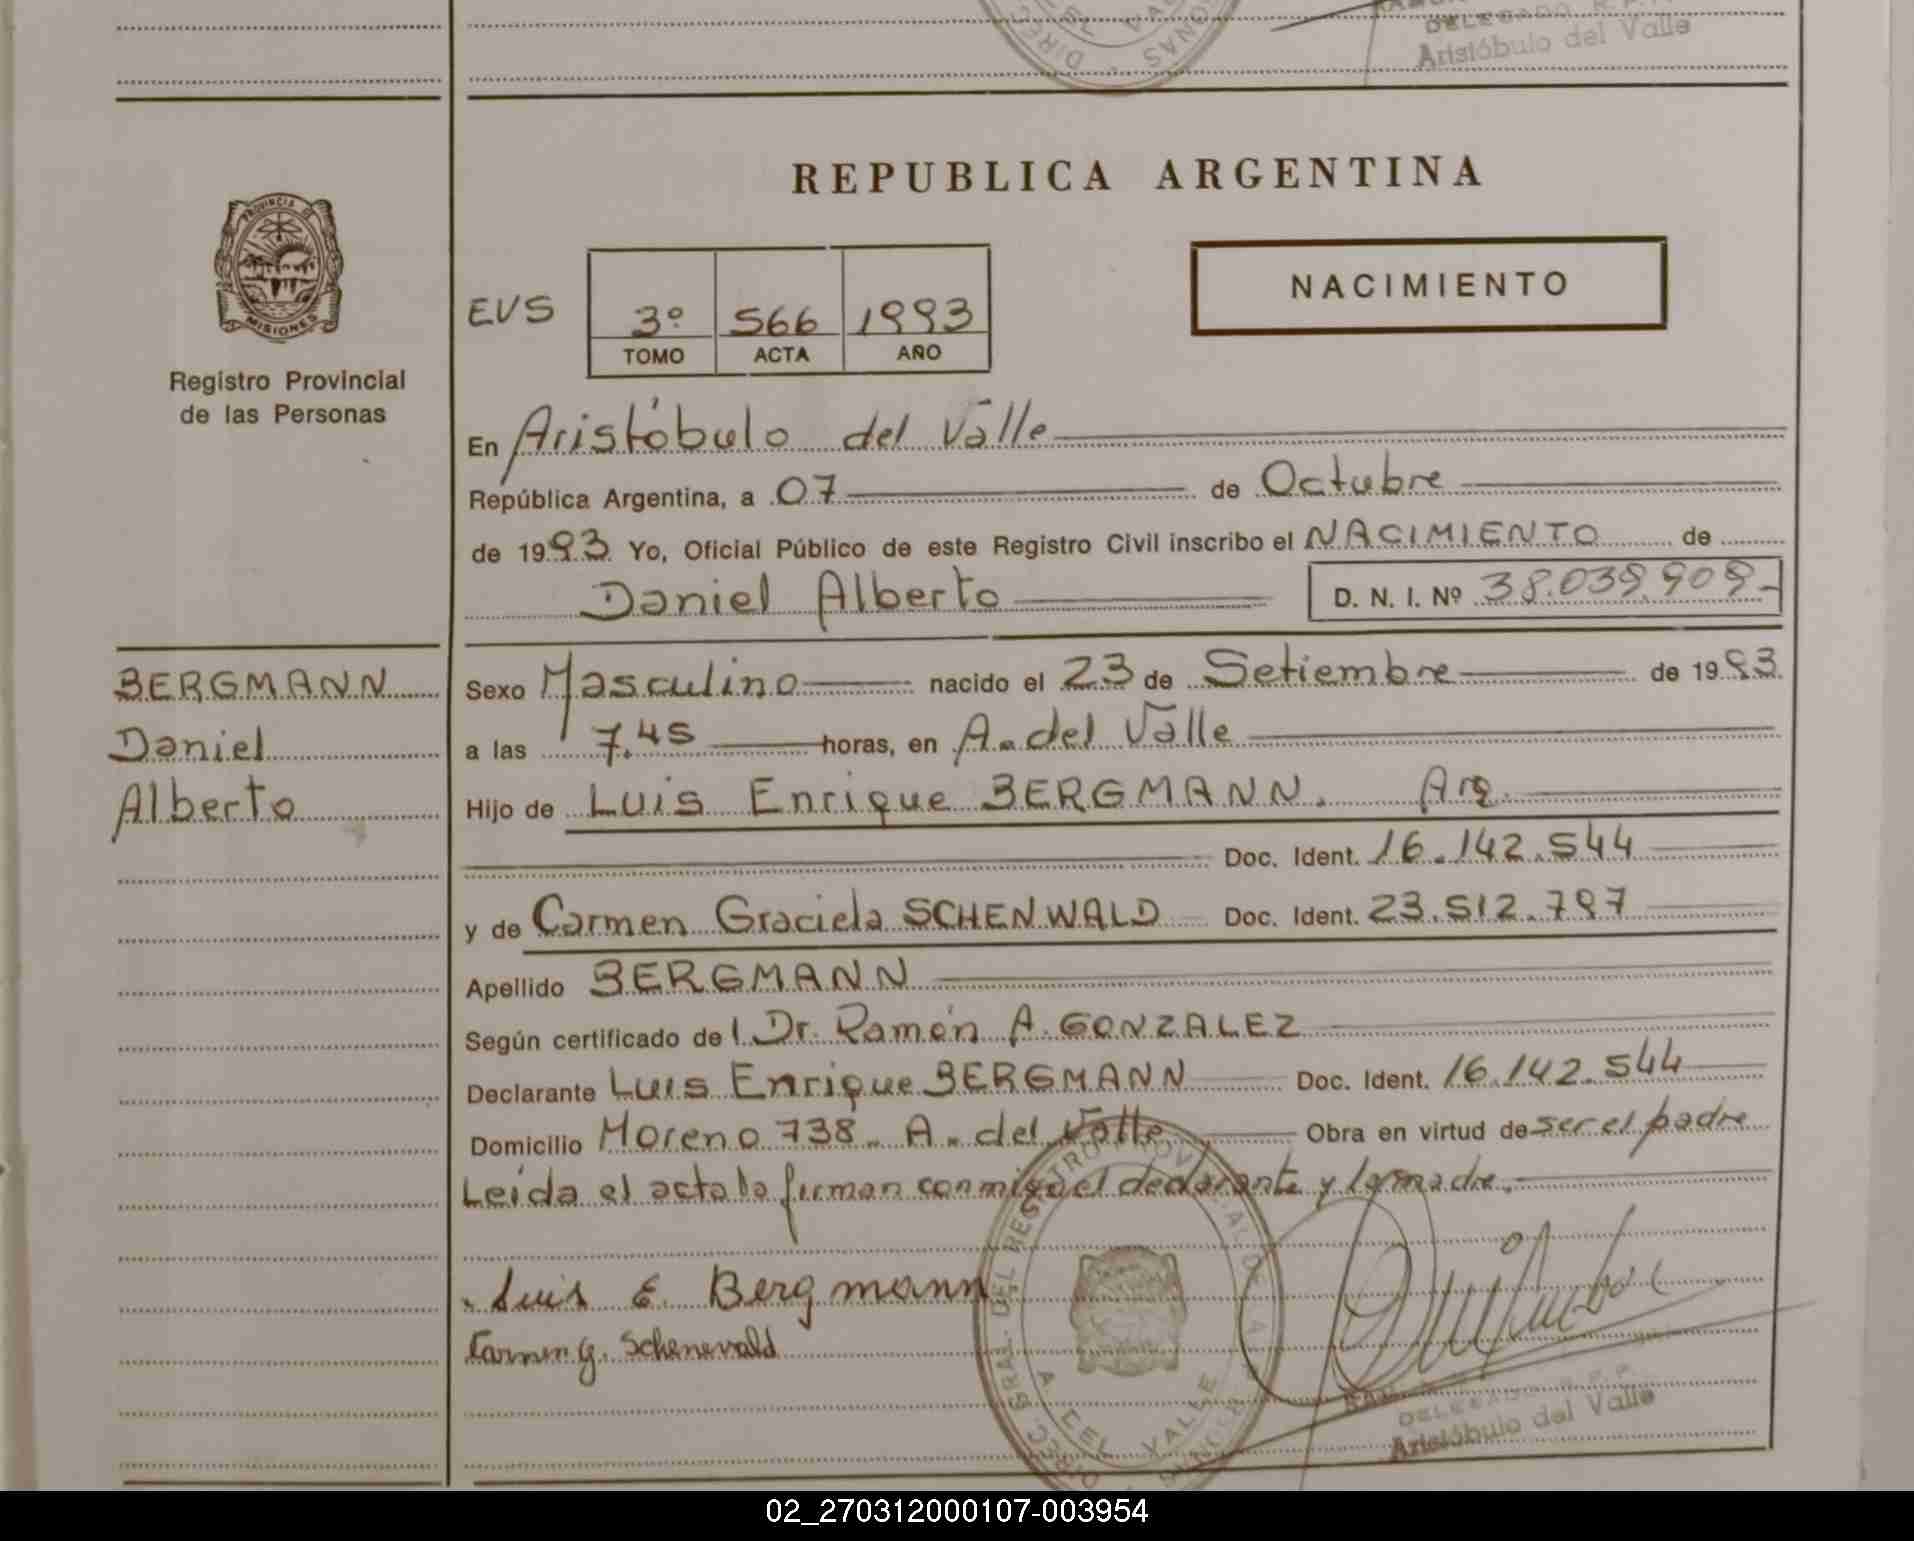 DELEGADO R.P.P.
Aristóbulo del Valle
REPUBLICA ARGENTINA
PROVINCIA DE
MISIONES
Registro Provincial
de las Personas
EVS
3º 566 1993
TOMO ACTA AÑO
NACIMIENTO
En Aristóbulo del Valle
República Argentina, a 07 de Octubre
de 1993 Yo, Oficial Público de este Registro Civil inscribo el NACIMIENTO de
Daniel Alberto D. N. I. Nº 38.039.909-
BERGMANN
Daniel
Alberto
Sexo Masculino nacido el 23 de Setiembre de 1993
a las 7.45 horas, en A. del Valle
Hijo de Luis Enrique BERGMANN. Arg.
Doc. Ident. 16.142.544
y de Carmen Graciela SCHENWALD Doc. Ident. 23.512.797
Apellido BERGMANN
Según certificado del Dr. Ramón A. GONZALEZ
Declarante Luis Enrique BERGMANN Doc. Ident. 16.142.544
Domicilio Moreno 738. A. del Valle Obra en virtud de ser el padre
Leída el acta la firman conmigo el declarante y la madre.
Luis E. Bergmann
Carmen G. Schenevald
DEL REGISTRO PROVINCIAL DE LA
A. DEL VALLE
DELEGADO R.P.P.
Aristóbulo del Valle
02_270312000107-003954